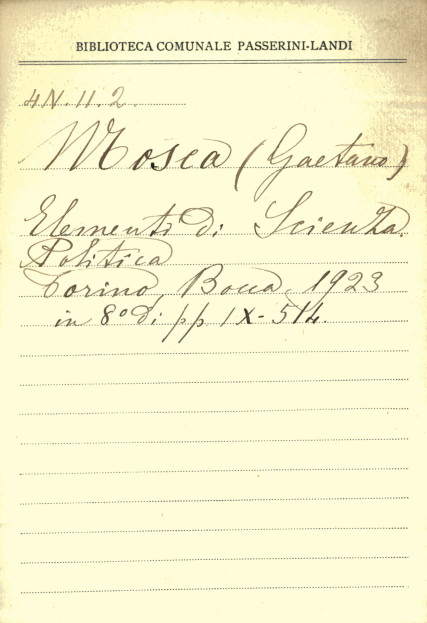 BIBLIOTECA COMUNALE PASSERINI-LANDI
4N.11.2.
Mosca (Gaetano)
Elementi di Scienza
Politica
Torino, Bocca, 1923
in 8º di pp IX-514.